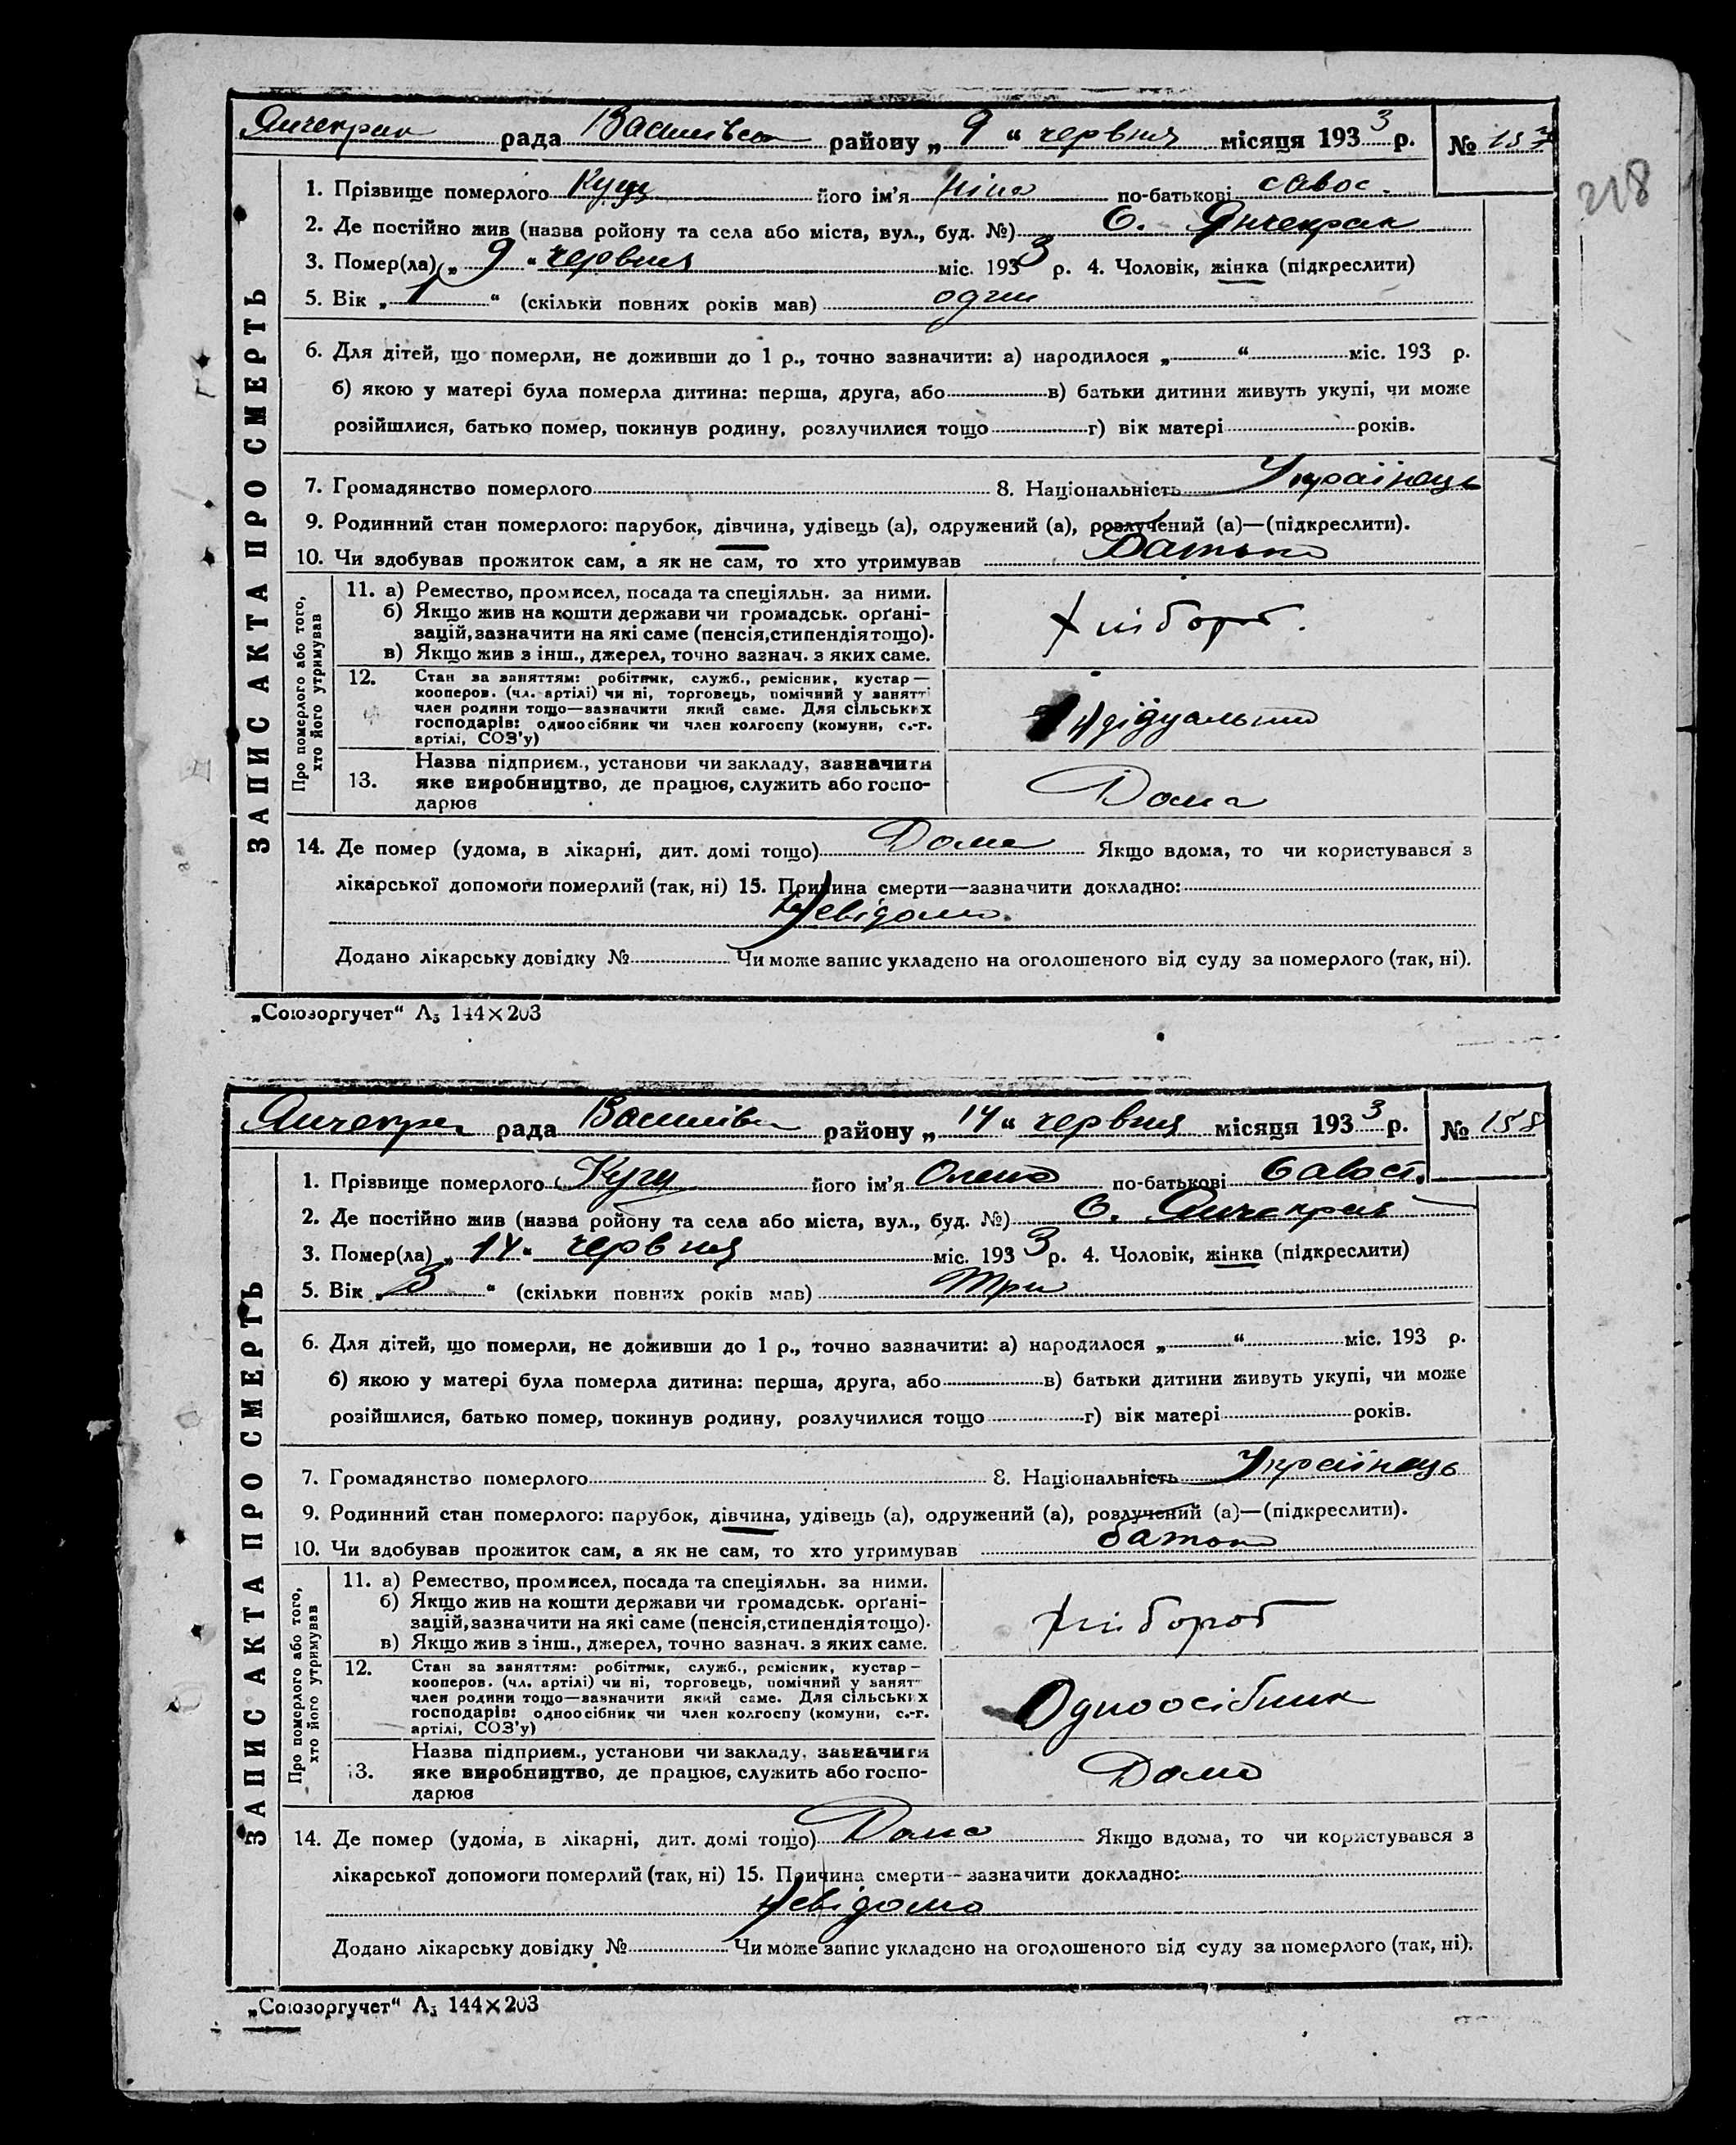 Янчекрак рада Василівсь району „ 9 “ червня місяця 193 3 р. № 157
218
1. Прізвище померлого Кущ його ім'я Ніна по-батькові Савос.
2. Де постійно жив (назва ройону та села або міста, вул., буд. №) С. Янчекрак
3. Помер(ла) „ 9 “ червня міс. 193 3 р. 4. Чоловік, жінка (підкреслити)
5. Вік „ 1 “ (скільки повних років мав) один
6. Для дітей, що померли, не доживши до 1 р., точно зазначити: а) народилося „ “ міс. 193 р.
б) якою у матері була померла дитина: перша, друга, або в) батьки дитини живуть укупі, чи може
розійшлися, батько помер, покинув родину, розлучилися тощо г) вік матері років.
7. Громадянство померлого 8. Національність Українець
9. Родинний стан померлого: парубок, дівчина, удівець (а), одружений (а), розлучений (а)—(підкреслити).
10. Чи здобував прожиток сам, а як не сам, то хто утримував Батько
ЗАПИС АКТА ПРО СМЕРТЬ
Про померлого або того,
хто його утримував
11. а) Ремество, промисел, посада та спеціяльн. за ними.
б) Якщо жив на кошти держави чи громадськ. орґані-
зацій, зазначити на які саме (пенсія, стипендія тощо).
в) Якщо жив з інш., джерел, точно зазнач. з яких саме.
Хлібороб.
12. Стан за заняттям: робітник, служб., ремісник, кустар—
кооперов. (чл. артілі) чи ні, торговець, помічний у занятті
член родини тощо—зазначити який саме. Для сільських
господарів: одноосібник чи член колгоспу (комуни, с.-г.
артілі, СОЗ'у)
13. Назва підприєм., установи чи закладу, зазначити
яке виробництво, де працює, служить або госпо-
дарює
Дома
14. Де помер (удома, в лікарні, дит. домі тощо) Дома Якщо вдома, то чи користувався з
лікарської допомоги померлий (так, ні) 15. Причина смерти—зазначити докладно:
Невідомо.
Додано лікарську довідку № Чи може запис укладено на оголошеного від суду за померлого (так, ні).
„Союзоргучет“ А₅ 144×203
Янчекрак рада Василівсь району „ 14 “ червня місяця 193 3 р. № 158
1. Прізвище померлого Кущ його ім'я Олена по-батькові Савост.
2. Де постійно жив (назва ройону та села або міста, вул., буд. №) С. Янчекрак
3. Помер(ла) „ 14 “ червня міс. 193 3 р. 4. Чоловік, жінка (підкреслити)
5. Вік „ 3 “ (скільки повних років мав) три
6. Для дітей, що померли, не доживши до 1 р., точно зазначити: а) народилося „ “ міс. 193 р.
б) якою у матері була померла дитина: перша, друга, або в) батьки дитини живуть укупі, чи може
розійшлися, батько помер, покинув родину, розлучилися тощо г) вік матері років.
7. Громадянство померлого 8. Національність Українець
9. Родинний стан померлого: парубок, дівчина, удівець (а), одружений (а), розлучений (а)—(підкреслити).
10. Чи здобував прожиток сам, а як не сам, то хто утримував батько
ЗАПИС АКТА ПРО СМЕРТЬ
Про померлого або того,
хто його утримував
11. а) Ремество, промисел, посада та спеціяльн. за ними.
б) Якщо жив на кошти держави чи громадськ. орґані-
зацій, зазначити на які саме (пенсія, стипендія тощо).
в) Якщо жив з інш., джерел, точно зазнач. з яких саме.
Хлібороб
12. Стан за заняттям: робітник, служб., ремісник, кустар—
кооперов. (чл. артілі) чи ні, торговець, помічний у занят
член родини тощо—зазначити який саме. Для сільських
господарів: одноосібник чи член колгоспу (комуни, с.-г.
артілі, СОЗ'у)
Одноосібник
13. Назва підприєм., установи чи закладу, зазначити
яке виробництво, де працює, служить або госпо-
дарює
Дома
14. Де помер (удома, в лікарні, дит. домі тощо) Дома Якщо вдома, то чи користувався з
лікарської допомоги померлий (так, ні) 15. Причина смерти—зазначити докладно:
Невідомо
Додано лікарську довідку № Чи може запис укладено на оголошеного від суду за померлого (так, ні).
„Союзоргучет“ А₅ 144×203